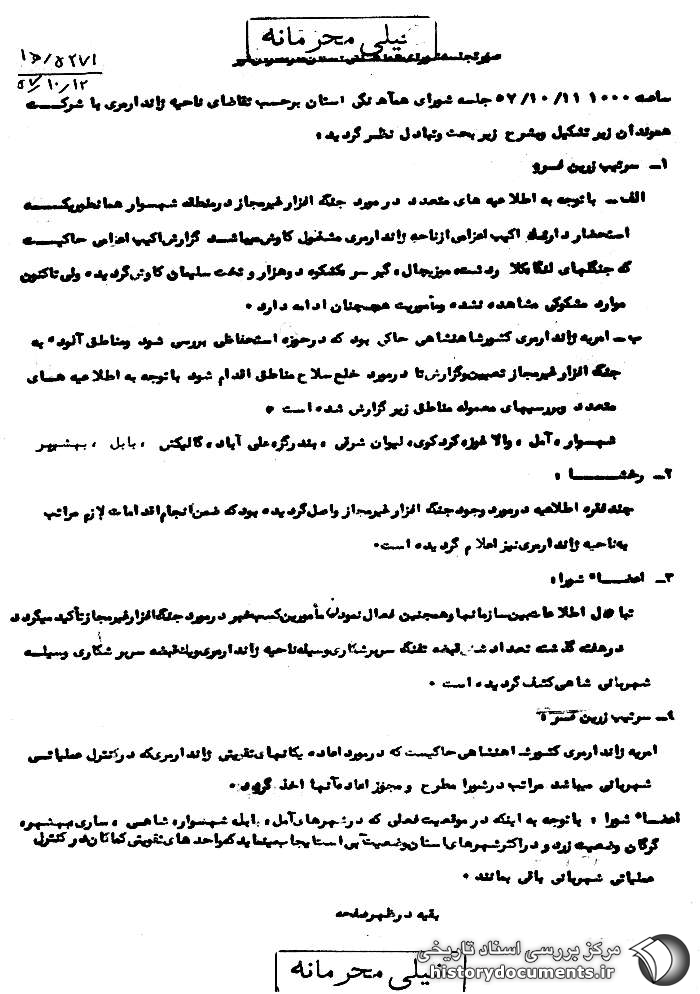 خیلی محرمانه
۱۵/۵۲۷۱
۵۷/۱۰/۱۲
صورتجلسه شورای هماهنگی استان
ساعت ۱۰۰۰ ۵۷/۱۰/۱۱ جلسه شورای همآهنگی استان برحسب تقاضای ناحیه ژاندارمری با شرکت
هموندان زیر تشکیل وبشرح زیر بحث وتبادل نظر گردید .
۱ـ سرتیپ زرین فرو
الف ـ باتوجه به اطلاعیه های متعدد در مورد جنگ افزار غیرمجاز در منطقه شهسوار همانطوریکه
استحضار دارند اکیپ اعزامی از ناحیه ژاندارمری مشغول کاوش میباشد گزارش اکیپ اعزامی حاکیست
که جنگلهای دشت دوهزار و تخت سلیمان کاوش گردیده ولی تاکنون
موارد مشکوکی مشاهده نشده ومأموریت همچنان ادامه دارد .
ب ـ امریه ژاندارمری کشورشاهنشاهی حاکی بود که در حوزه استحفاظی بررسی شود ومناطق آلوده به
جنگ افزار غیرمجاز تعیین وگزارش تا درمورد خلع سلاح مناطق اقدام شود باتوجه به اطلاعیه های
متعدد وبررسیهای معموله مناطق زیر گزارش شده است .
شهسوار ، آمل ، کردکوی ، لیوان شرقی ، بندرگز ، علی آباد ، گالیکش ، بابل ، بهشهر
۲ـ رخشا :
چند فقره اطلاعیه درمورد وجود جنگ افزار غیرمجاز واصل گردیده بود که ضمن انجام اقدامات لازم مراتب
به ناحیه ژاندارمری نیز اعلام گردیده است .
۳ـ اعضاء شورا :
تبادل اطلاعات بین سازمانها وهمچنین فعال نمودن مأمورین کسب خبر درمورد جنگ افزار غیرمجاز تأکید میگردد
درهفته گذشته تعداد شش قبضه تفنگ سرپر شکاری وسیله ناحیه ژاندارمری ویک قبضه سرپر شکاری وسیله
شهربانی شاهی کشف گردیده است .
۴ـ سرتیپ زرین فرو :
امریه ژاندارمری کشور شاهنشاهی حاکیست که درمورد اعاده یکانهای تقویتی ژاندارمری که در کنترل عملیاتی
شهربانی میباشد مراتب درشورا مطرح و مجوز اعاده آنها اخذ گردد .
اعضاء شورا : باتوجه به اینکه در موقعیت فعلی که در شهرهای آمل ، بابل ، شهسوار ، شاهی ، ساری ، بهشهر ،
گرگان وضعیت زرد و در اکثر شهرهای استان وضعیت آبی است ایجاب مینماید که واحدهای تقویتی کماکان در کنترل
عملیاتی شهربانی باقی بمانند .
بقیه در ظهر صفحه
خیلی محرمانه
مرکز بررسی اسناد تاریخی
historydocuments.ir